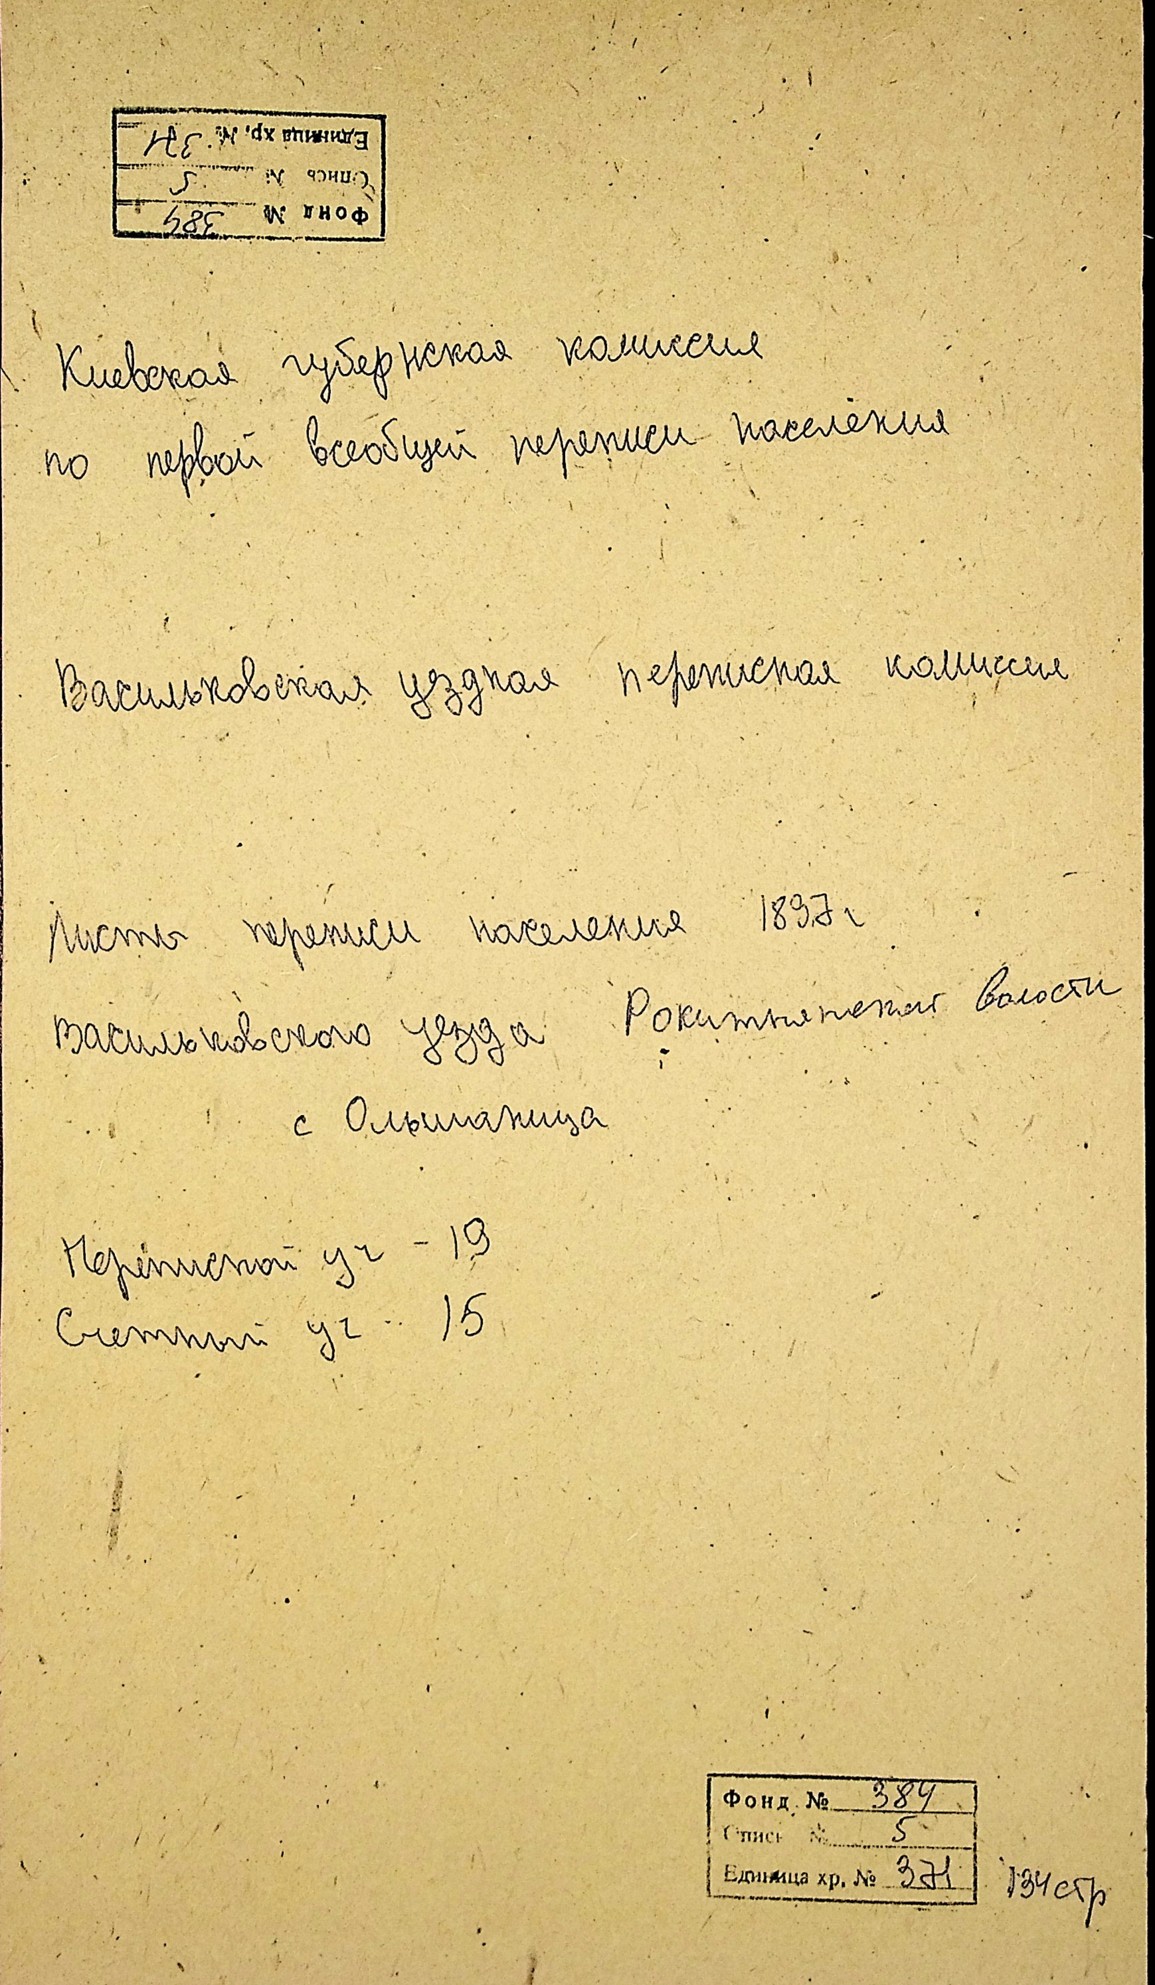 Единица хр. № 371
Опись № 5
Фонд № 384
Киевская губернская комиссия
по первой всеобщей переписи населения
Васильковская уездная переписная комиссия
Листы переписи населения 1897 г
Васильковского уезда Рокитнянской волости
с Ольшаница
Переписной уч - 19
Счетный уч - 15
Фонд № 384
Опись № 5
Единица хр. № 371
134 стр